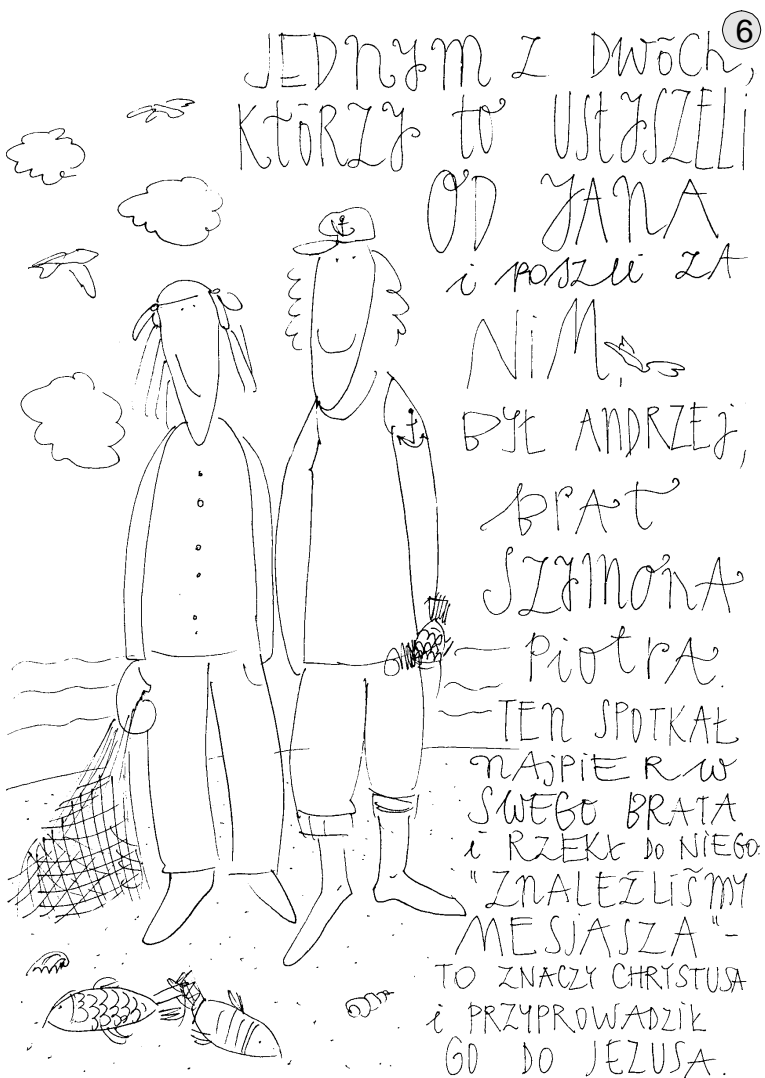 6
JEDNYM Z DWÓCH,
KTÓRZY TO USŁYSZELI
OD JANA
i POSZLI ZA
NiM,
BYŁ ANDRZEJ,
BRAT
SZYMONA
PiotrA.
TEN SPOTKAŁ
NAJPIERW
SWEGO BRATA
i RZEKŁ DO NIEGO:
"ZNALEŹLIŚMY
MESJASZA"-
TO ZNACZY CHRYSTUSA
i PRZYPROWADZIŁ
GO DO JEZUSA.